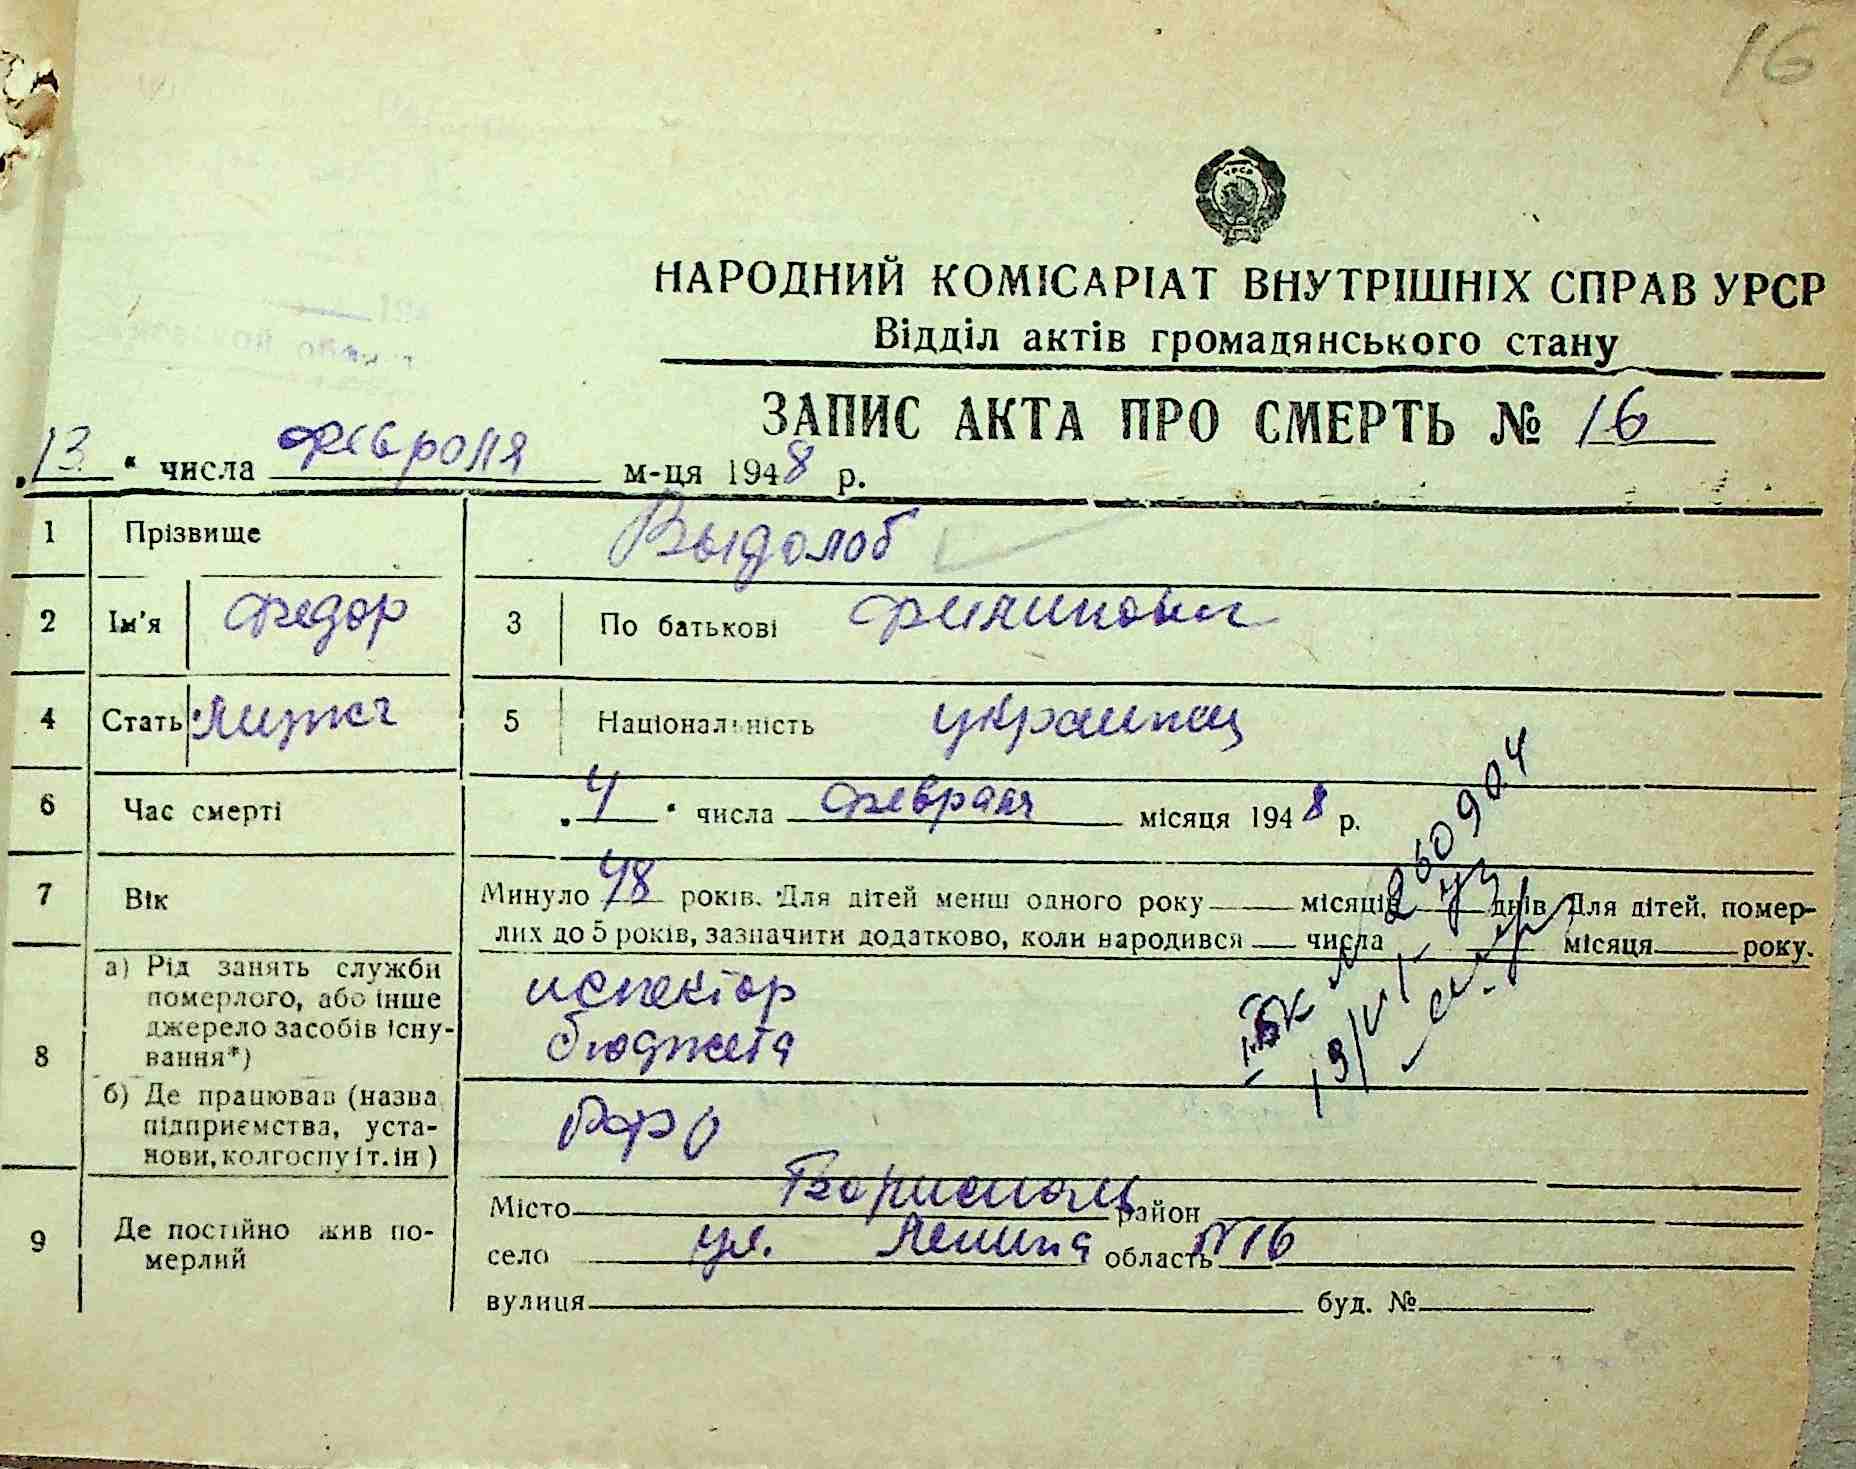 16
УРСР
НАРОДНИЙ КОМІСАРІАТ ВНУТРІШНІХ СПРАВ УРСР
Відділ актів громадянського стану
ЗАПИС АКТА ПРО СМЕРТЬ № 16
„13“ числа февроля м-ця 1948 р.
1 Прізвище Выдолоб
2 Ім'я Федор 3 По батькові Филипович
4 Стать Мужск 5 Національність украинец
6 Час смерті „4“ числа февраля місяця 1948 р.
7 Вік Минуло 48 років. Для дітей менш одного року місяців днів Для дітей, помер-
лих до 5 років, зазначити додатково, коли народився числа місяця року.
8 а) Рід занять служби померлого, або інше джерело засобів існу-вання*) испектор
бюджета
б) Де працював (назва підприємства, уста-нови, колгоспу і т. ін) РФО
9 Де постійно жив по-мерлий Місто Борисполь район
село ул. Ленина область N16
вулиця буд. №
№ 260904